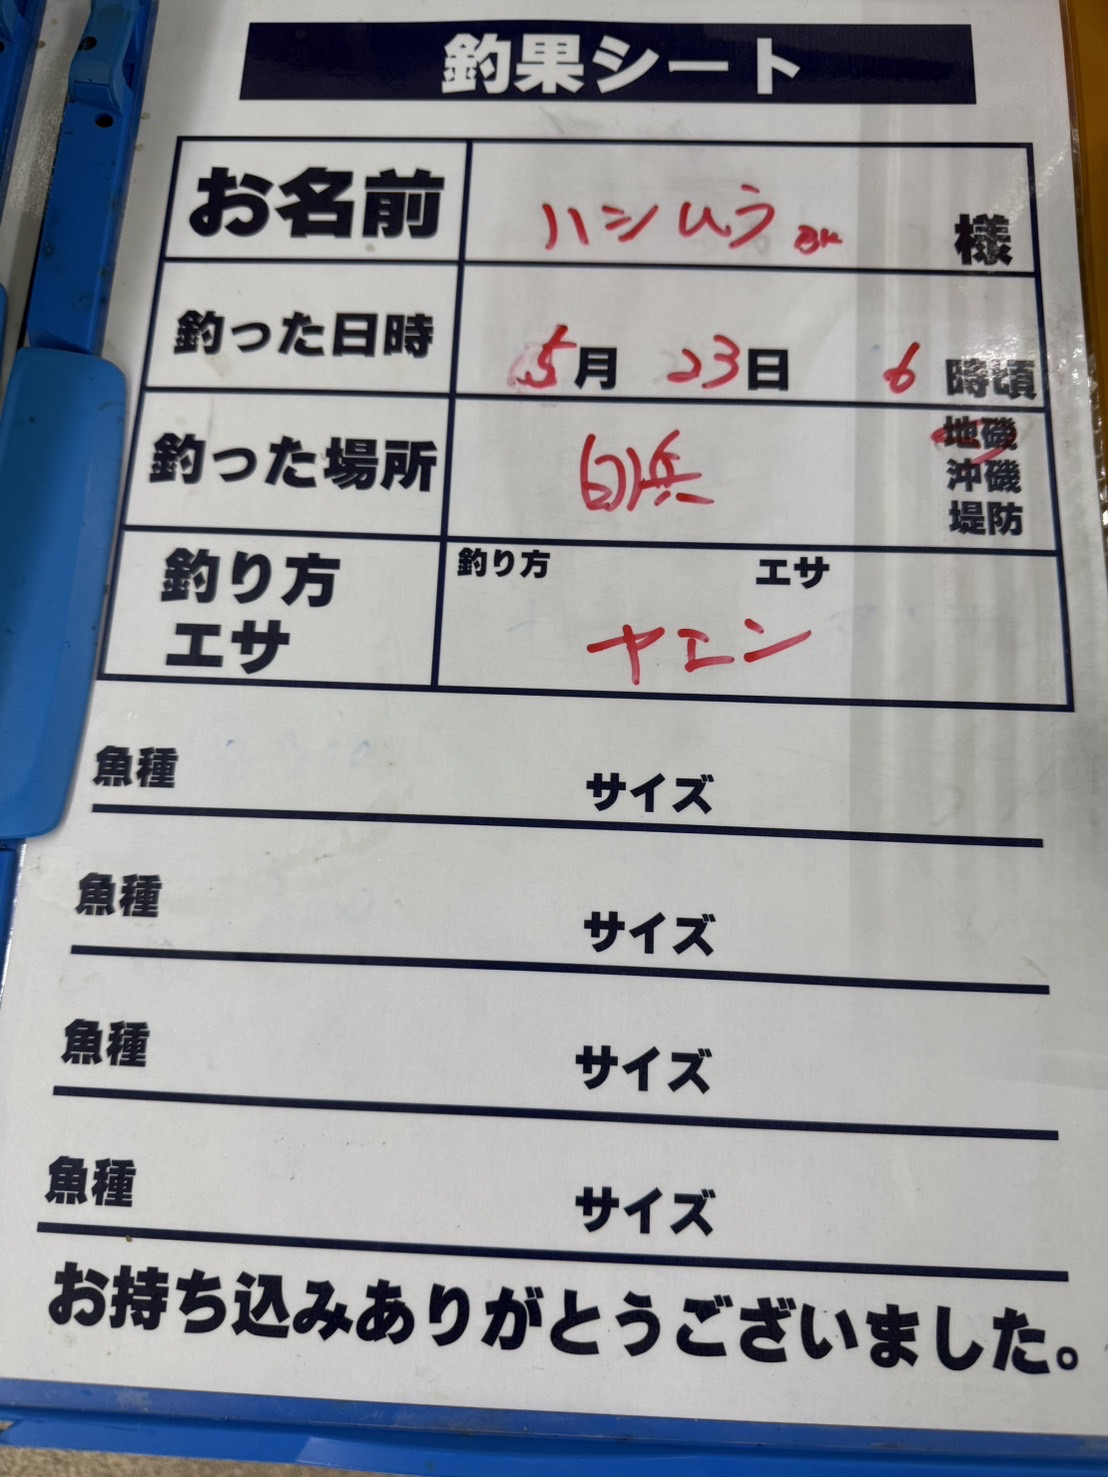 釣果シート
お名前 ハシムラ 様
釣った日時 5月 23日 6時頃
釣った場所 白浜 地磯
沖磯
堤防
釣り方 エサ
釣り方
エサ
ヤエン
魚種 サイズ
魚種 サイズ
魚種 サイズ
魚種 サイズ
お持ち込みありがとうございました。